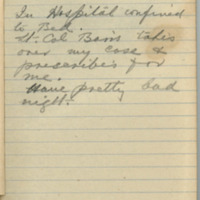 In Hospital confined
to Bed.
Lt. Col Bains takes
over my case &
prescribes for
me.
Have pretty bad
night.